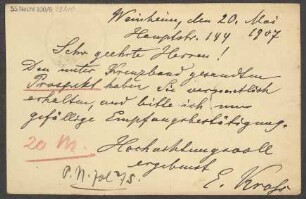 Weinheim, den 20. Mai
Hauptstr. 144 1907
Sehr geehrte Herren!
Den unter Kreuzband gesandten
Prospekt haben Sie
erhalten, und bitte ich um
gefällige Empfangsbestätigung.
20 M.
Hochachtungsvoll
ergebenst
P. N.
E.